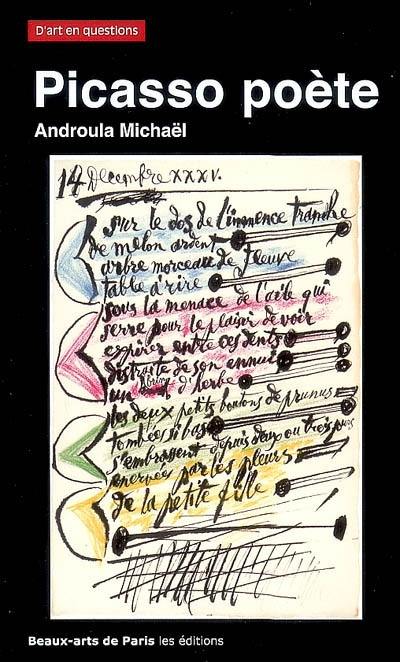 D'art en questions
Picasso poète
Androula Michaël
14 Decembre XXXV.
sur le dos de l'immence tranche
de melon ardent
arbre morceau de fleuve
table à rire
sous la menace de l'aile qui
serre pour le plaisir de voir
expirer entre ces dents
distraite de son ennui
un brin d'herbe
les deux petits boutons de prunus
tombées si bas
s'embrassent depuis deux ou trois jours
enervée par les pleurs
de la petite fille
Beaux-arts de Paris les éditions